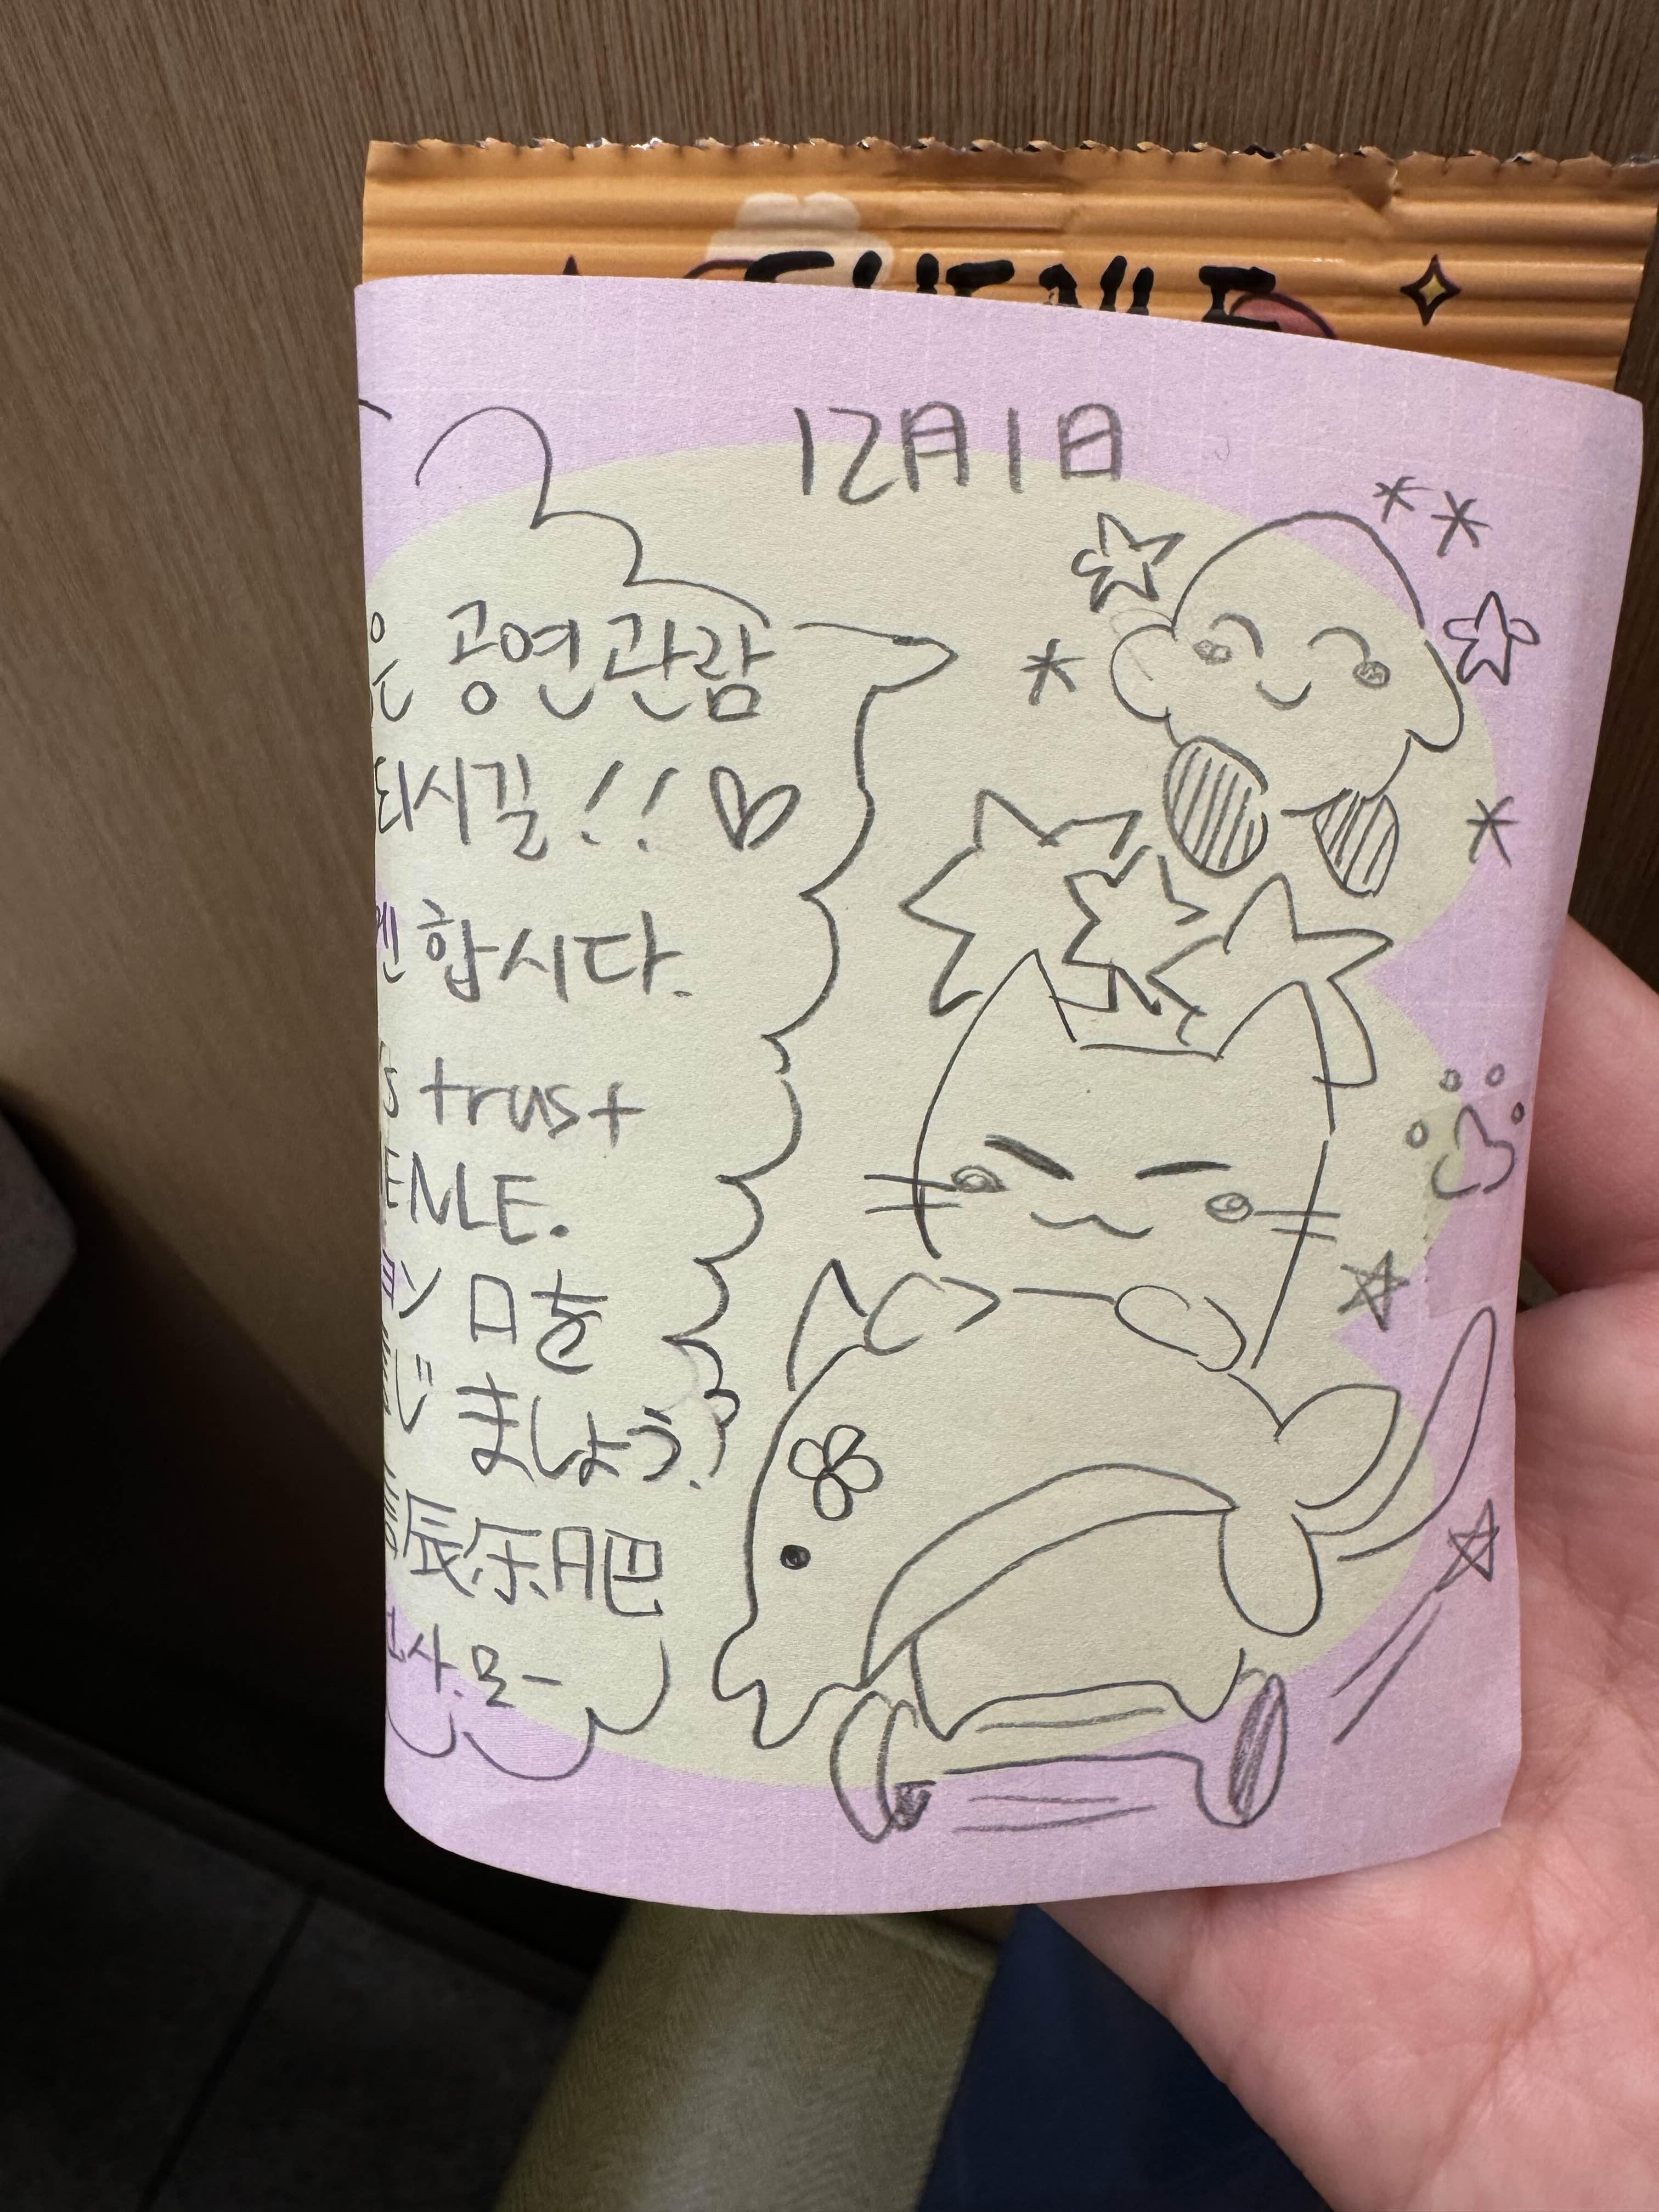 12月1日
은 공연관람
되시길!! ♡
합시다.
s trust
ENLE.
ン 口を
じ ましょう!
辰乐吧
사.모-